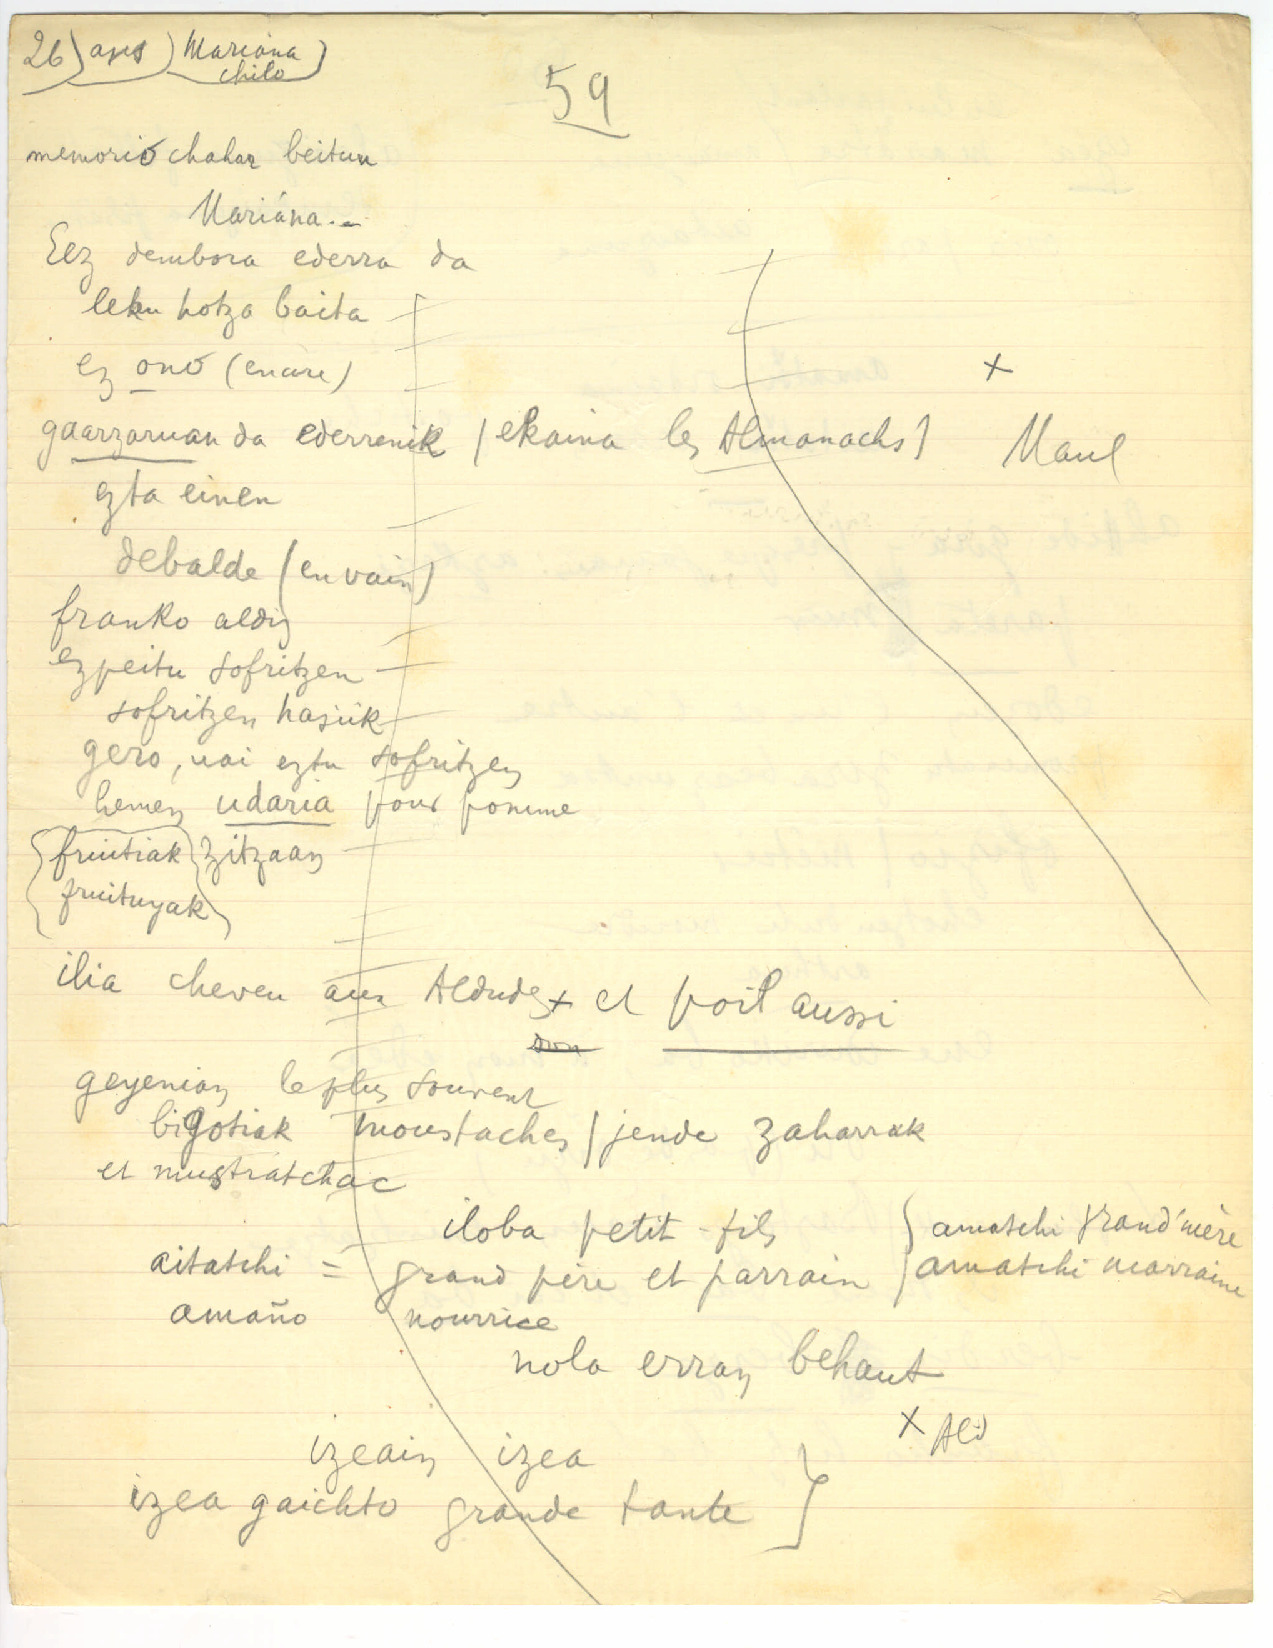 26) apes) Mariána
chilo)
59
memorió chahar beitun
Mariána...
Eez dembora ederra da
leku hotza baita
ez onó (encore)
gaarzaruan da ederrenik (ekaina les Almanachs)
x
Maul
ezta einen
debalde (en vain)
franko aldiz
ezpeitu sofritzen
sofritzen hasiik
gero, nai eztu sofritzen
hemen udaria pour pomme
{fruitiak} zitzaan
{fruituyak}
ilia cheveu aux Aldudes x et poil aussi
geyenian le plus souvent
bigotiak moustaches / jende zaharrak
et mustratchac
iloba petit-fils
{amatchi grand'mère
aitatchi = grand père et parrain {amatchi marraine
amaño nourrice
nola erran behaut
x Ald
izeain izea
izea gaichto grande tante }